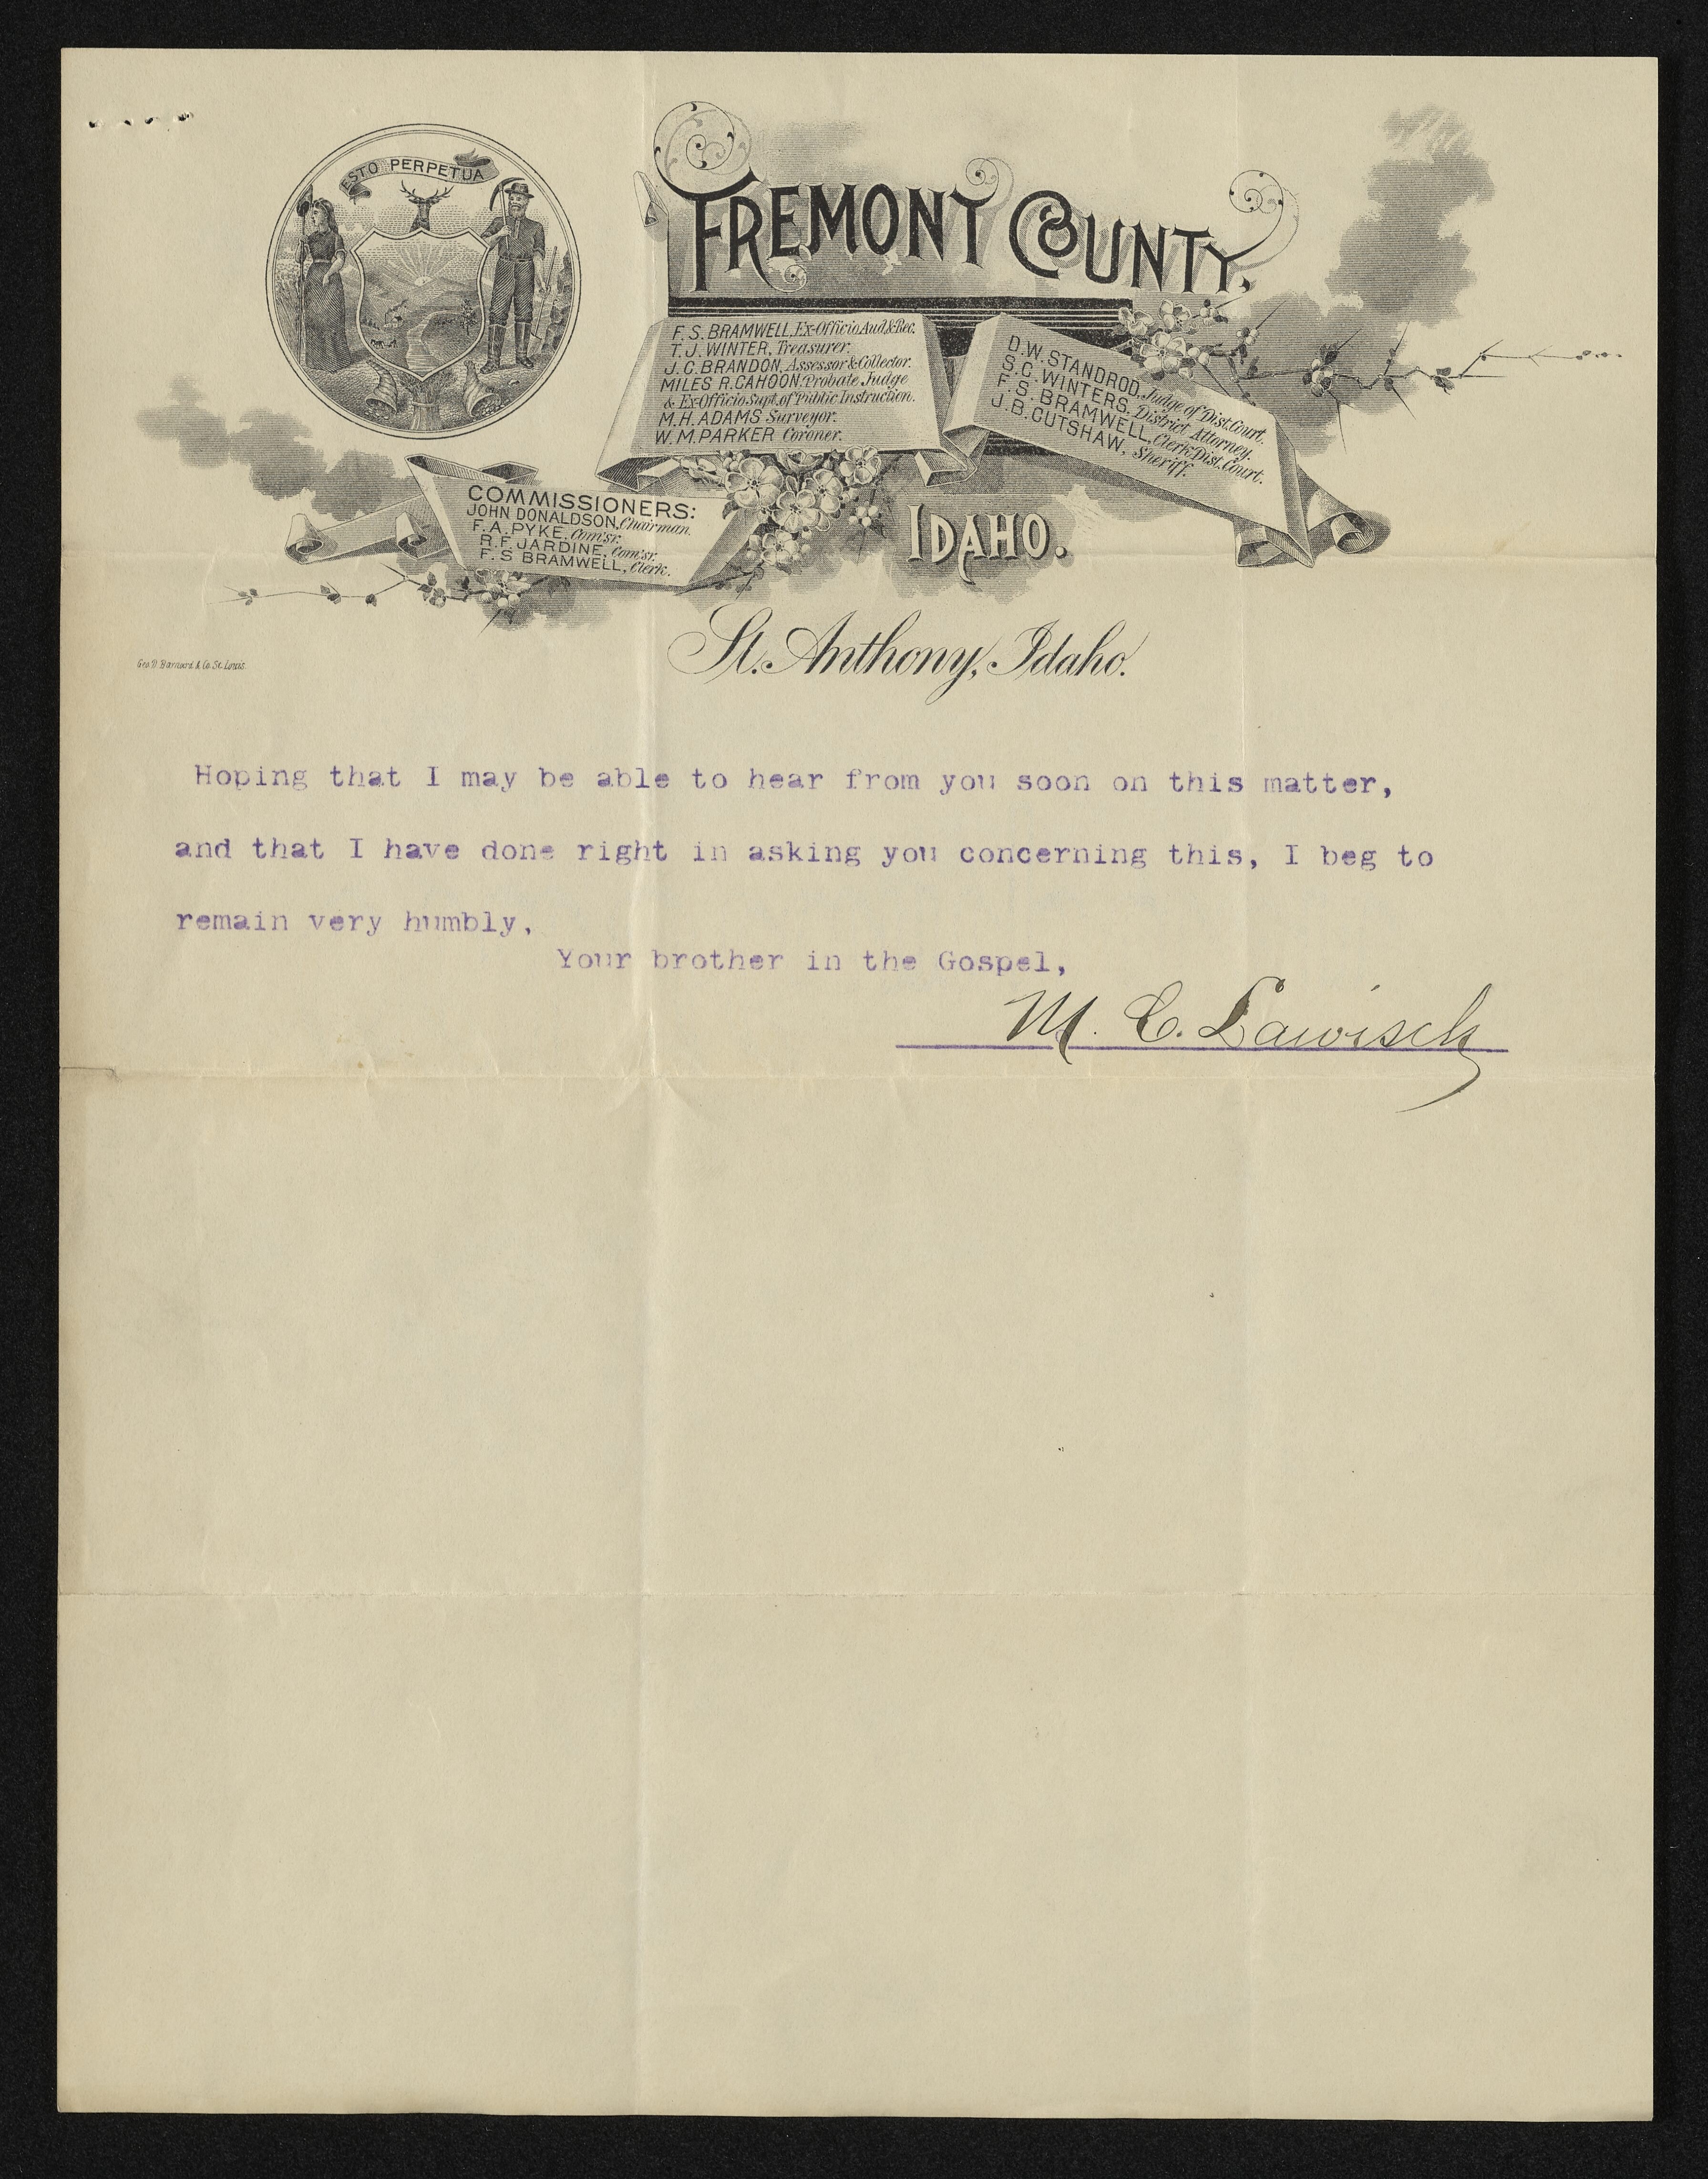 ESTO PERPETUA
FREMONT COUNTY,
F. S. BRAMWELL, Ex-Officio Aud. & Rec.
T. J. WINTER, Treasurer.
J. C. BRANDON, Assessor & Collector.
MILES R. CAHOON, Probate Judge
& Ex-Officio Supt. of Public Instruction.
M. H. ADAMS Surveyor.
W. M. PARKER Coroner.
D. W. STANDROD, Judge of Dist. Court.
S. C. WINTERS, District Attorney.
F. S. BRAMWELL, Clerk Dist. Court.
J. B. CUTSHAW, Sheriff.
COMMISSIONERS:
JOHN DONALDSON, Chairman.
F. A. PYKE, Com'sr.
R. F. JARDINE, Com'sr.
F. S BRAMWELL, Clerk.
IDAHO.
St. Anthony, Idaho.
Geo. D. Barnard & Co. St. Louis.
Hoping that I may be able to hear from you soon on this matter,
and that I have done right in asking you concerning this, I beg to
remain very humbly,
Your brother in the Gospel,
M. C. Lawisch